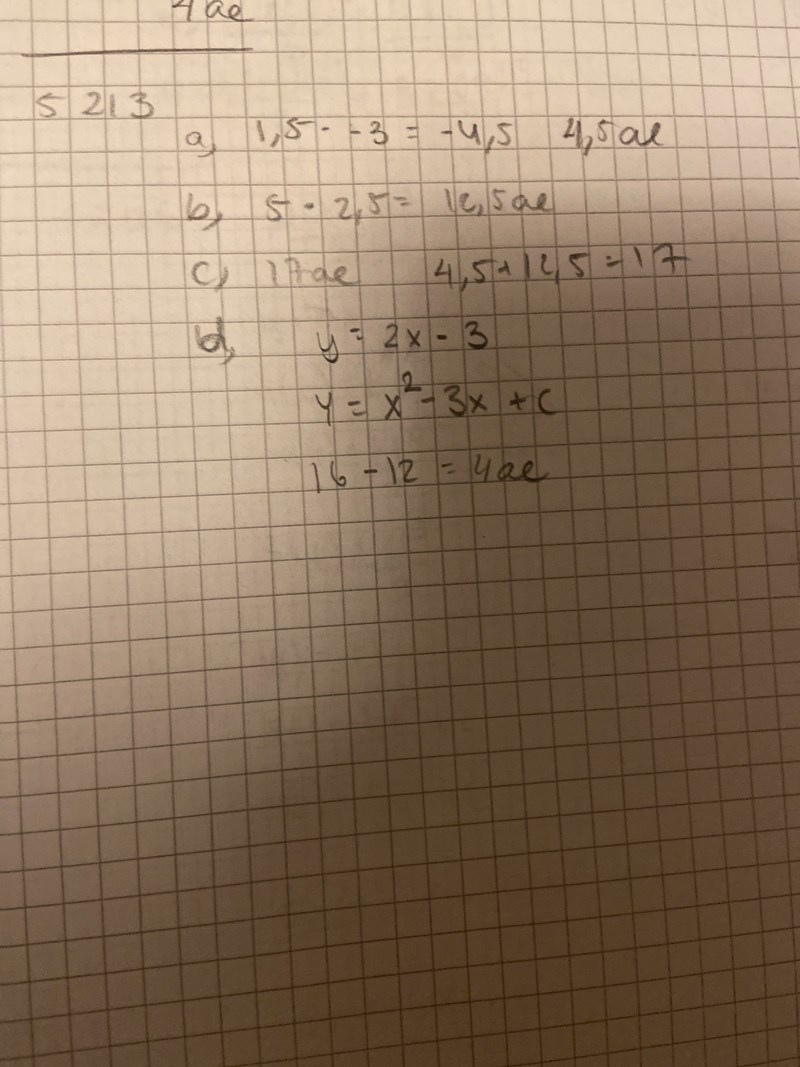 4ae
5213
a) 1,5 · -3 = -4,5 4,5ae
b) 5 · 2,5 = 12,5ae
c) 17ae 4,5+12,5 = 17
d) y = 2x - 3
y = x² - 3x + C
16 - 12 = 4ae